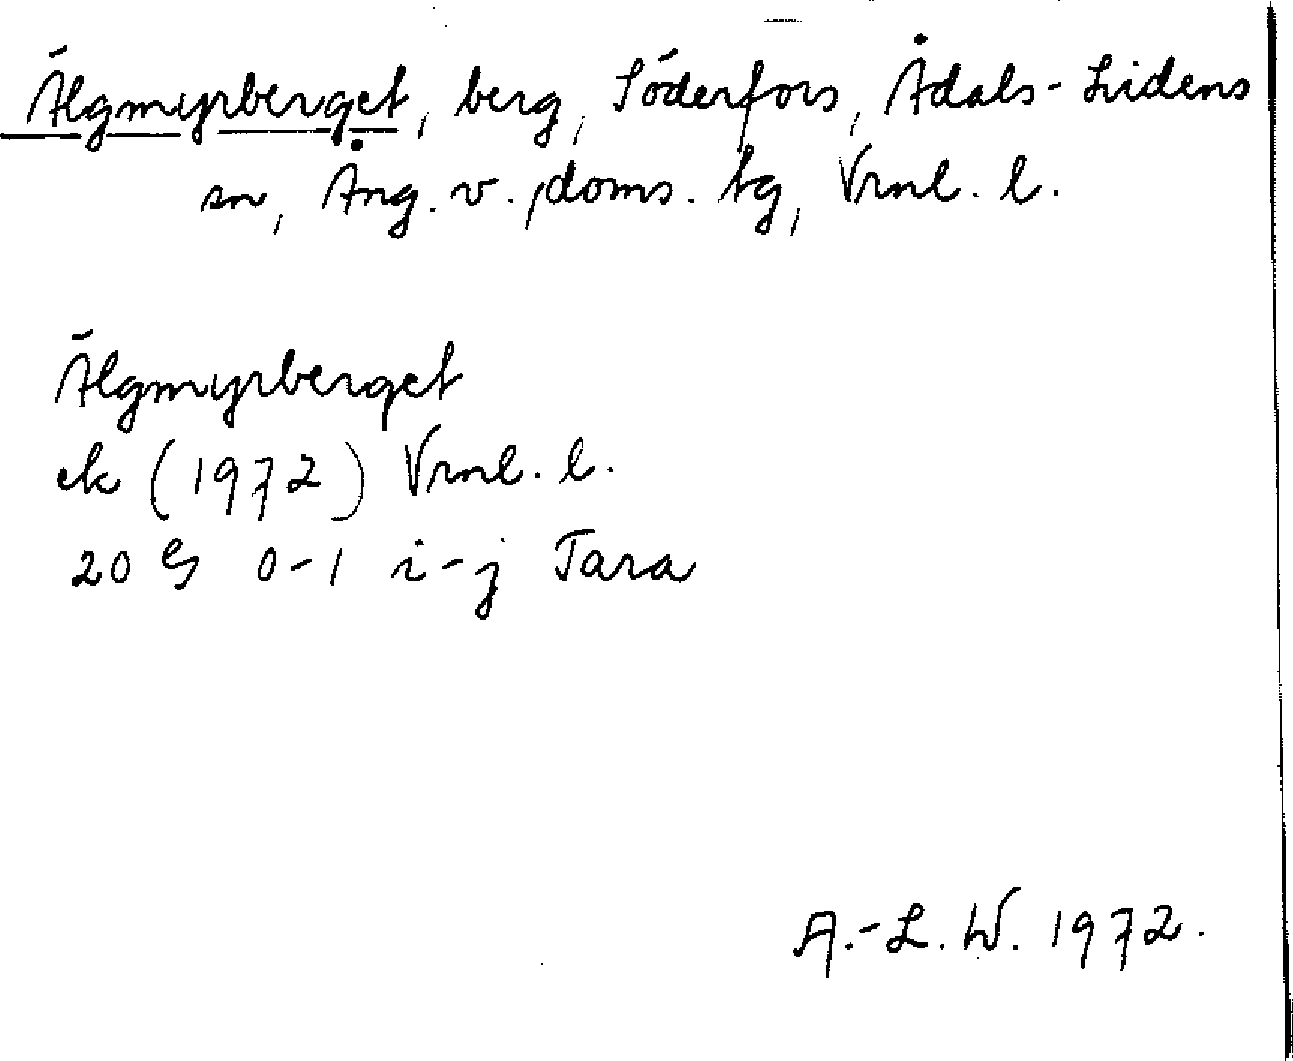 Älgmyrberget, berg, Söderfors, Ådals-Lidens
sn, Ång. v. doms. tg, Vrnl. l.
Älgmyrberget
ek (1972) Vrnl. l.
20 G 0-1 i-j Tara
A.-L. W. 1972.